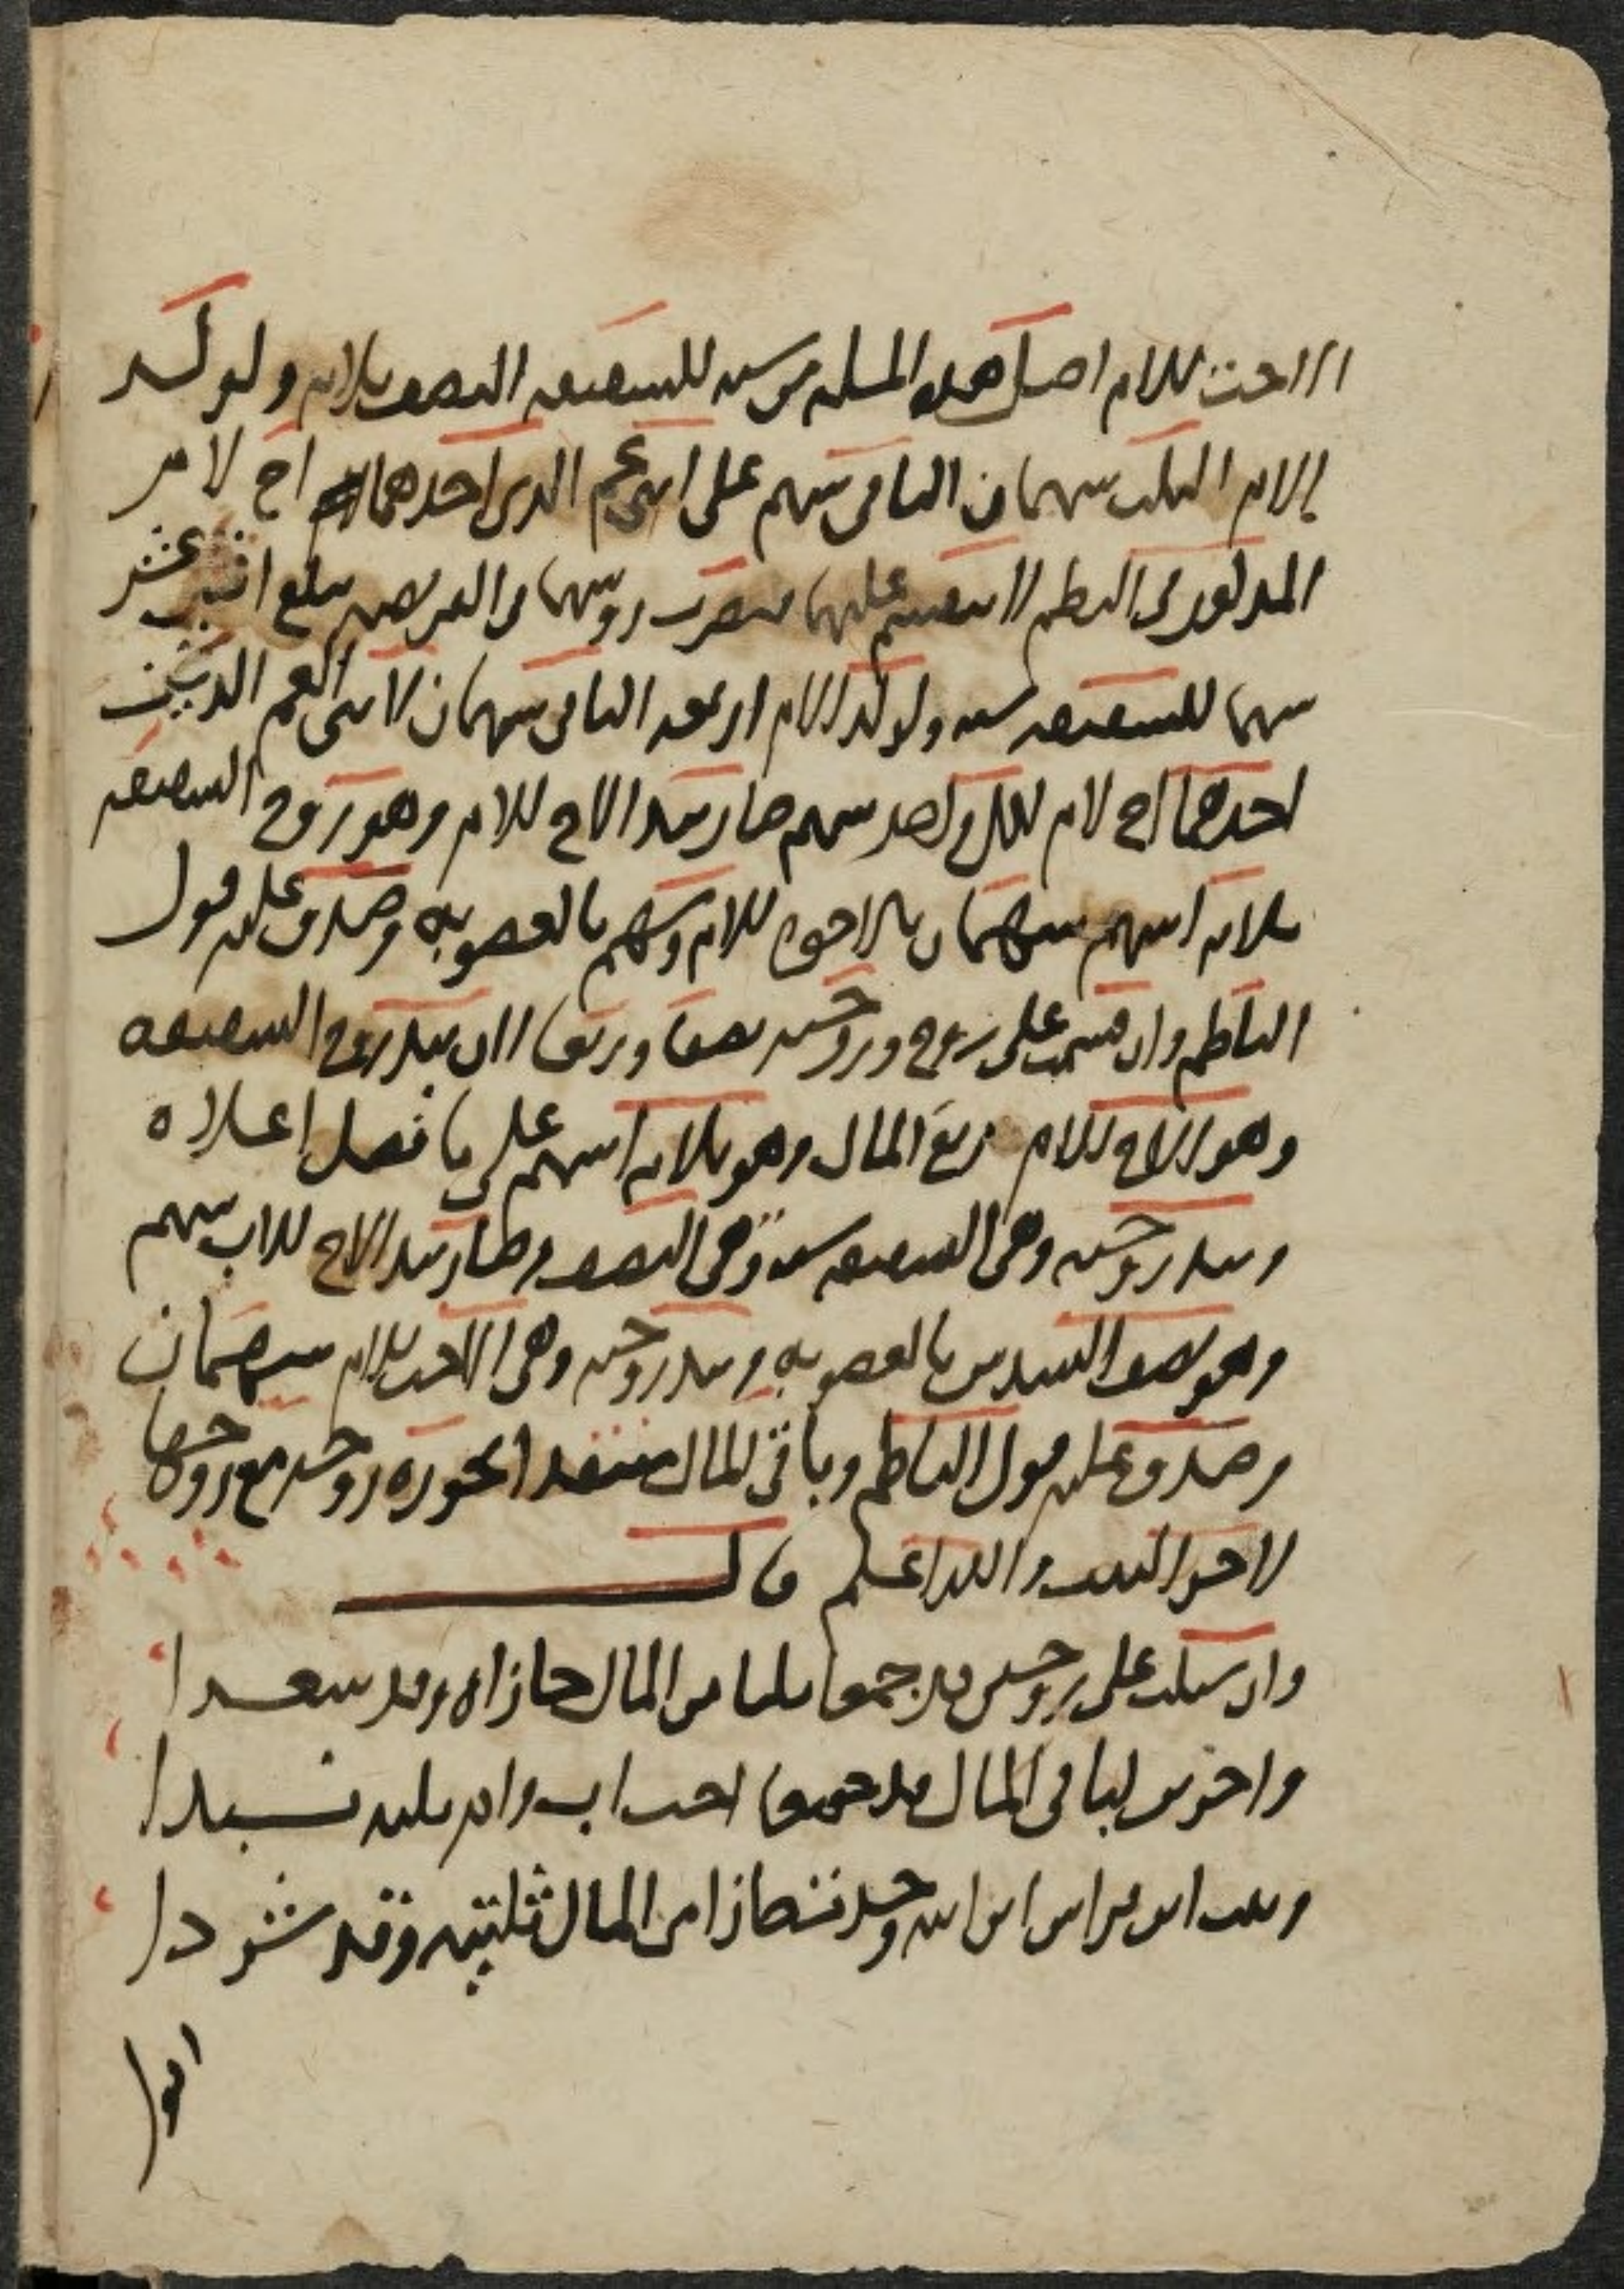 الاخت للام اصل هذه المسله من سته للشقيقه النصف ثلاثه ولولد
الام الثلث سهمان الباقي سهم على ابني عم الذي احدهما اخ لام
المذكور في النظم لا ينقسم عليهما فتضرب روسهما في الفريضه تبلغ اثني عشر
سهما للشقيقه سته ولولد الام اربعه الباقي سهمان لابني العم الذين
احدهما اخ لام لكل واحد سهم صار بيد الاخ للام وهو زوج الشقيقه
ثلاثه اسهم سهمان بالاخوه للام وسهم بالعصوبه وصدق عليه قول
الناظم وان قسمت على زوج وزوجته نصفا وربعا الان بيد زوج الشقيقه
وهو الاخ للام ربع المال وهو ثلاثه اسهم على ما فصل اعلاه
وبيد زوجته وهي الشقيقه سته وهي النصف وصار بيد الاخ للاب سهم
وهو نصف السدس بالعصوبه وبيد زوجته وهي الاخت للام سهمان
وصدق عليه قول الناظم وباقي المال تحوزه زوجه مع زوجها
لاخر البيت والله اعلم قال
وان سئلت على زوجين قد جمعا ثلثا من المال حازاه وقد سعدا
واخرين لباقي المال قد جمعا اخت اب وام ثلثه نسبدا
وبنت ابن ابن ابنه وجد فحازا من المال ثلثيه وقد شردا
اقول